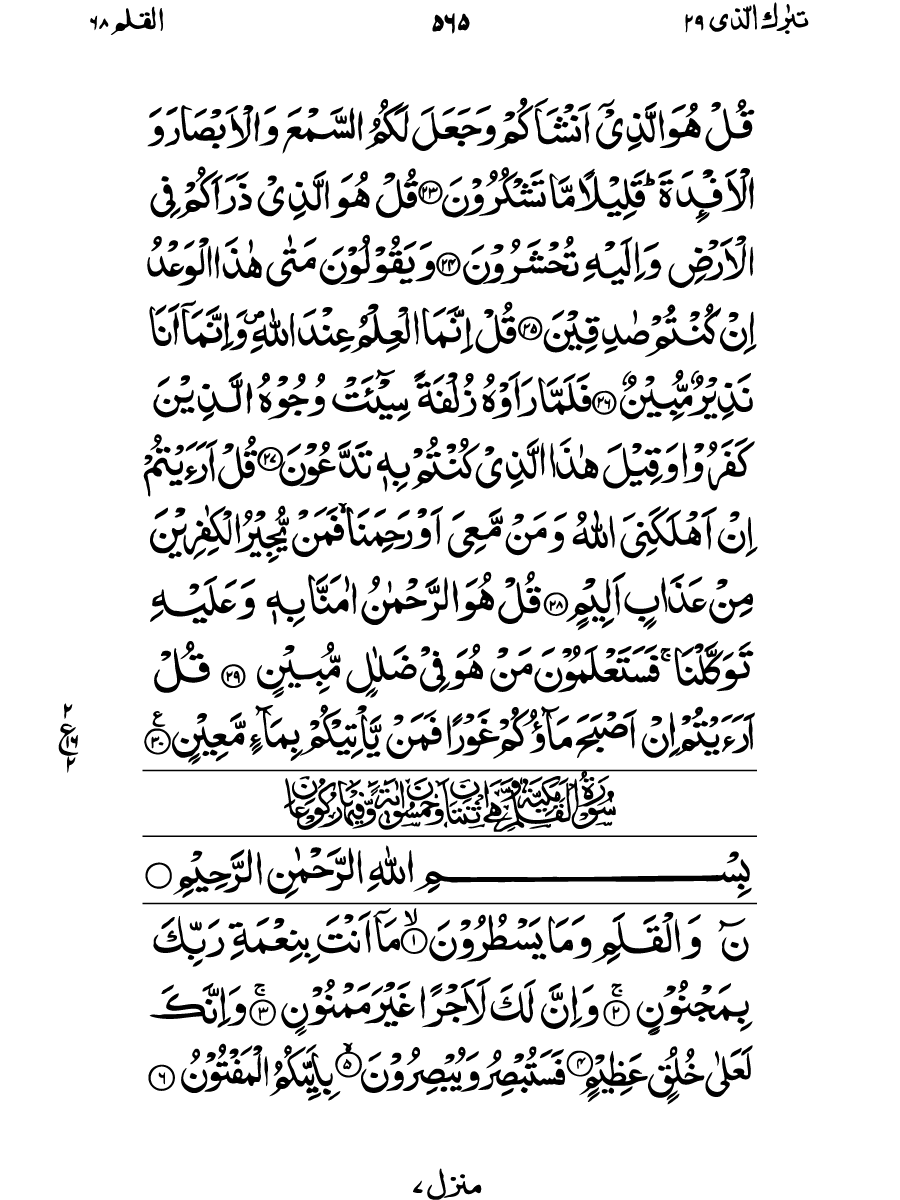 تبٰرك الّذى ٢٩ ٥٦٥ القلم ٦٨
قُلْ هُوَ الَّذِىْۤ اَنْشَاَكُمْ وَجَعَلَ لَكُمُ السَّمْعَ وَالْاَبْصَارَ وَ
الْاَفْـِٕدَةَ ؕ قَلِيْلًا مَّا تَشْكُرُوْنَ ۝٢٣ قُلْ هُوَ الَّذِىْ ذَرَاَكُمْ فِى
الْاَرْضِ وَاِلَيْهِ تُحْشَرُوْنَ ۝٢٤ وَيَقُوْلُوْنَ مَتٰى هٰذَا الْوَعْدُ
اِنْ كُنْتُمْ صٰدِقِيْنَ ۝٢٥ قُلْ اِنَّمَا الْعِلْمُ عِنْدَ اللّٰهِ ۪ وَاِنَّمَاۤ اَنَا
نَذِيْرٌ مُّبِيْنٌ ۝٢٦ فَلَمَّا رَاَوْهُ زُلْفَةً سِيْٓـَٔتْ وُجُوْهُ الَّذِيْنَ
كَفَرُوْا وَقِيْلَ هٰذَا الَّذِىْ كُنْتُمْ بِهٖ تَدَّعُوْنَ ۝٢٧ قُلْ اَرَءَيْتُمْ
اِنْ اَهْلَكَنِىَ اللّٰهُ وَمَنْ مَّعِىَ اَوْ رَحِمَنَا ۙ فَمَنْ يُّجِيْرُ الْكٰفِرِيْنَ
مِنْ عَذَابٍ اَلِيْمٍ ۝٢٨ قُلْ هُوَ الرَّحْمٰنُ اٰمَنَّا بِهٖ وَعَلَيْهِ
تَوَكَّلْنَا ۚ فَسَتَعْلَمُوْنَ مَنْ هُوَ فِىْ ضَلٰلٍ مُّبِيْنٍ ۝٢٩ قُلْ
اَرَءَيْتُمْ اِنْ اَصْبَحَ مَآؤُكُمْ غَوْرًا فَمَنْ يَّاْتِيْكُمْ بِمَآءٍ مَّعِيْنٍ ۝٣٠ ع
٢
ع ١٦
٢
سُوْرَةُ الْقَلَمِ مَكِّيَّةٌ وَّهِىَ اثْنَتَانِ وَخَمْسُوْنَ اٰيَةً وَّفِيْهَا رُكُوْعَانِ
بِسْمِ اللّٰهِ الرَّحْمٰنِ الرَّحِيْمِ ۝
نٓ وَالْقَلَمِ وَمَا يَسْطُرُوْنَ ۙ‏ ۝١ مَاۤ اَنْتَ بِنِعْمَةِ رَبِّكَ
بِمَجْنُوْنٍ ۚ ۝٢ وَاِنَّ لَكَ لَاَجْرًا غَيْرَ مَمْنُوْنٍ ۚ ۝٣ وَاِنَّكَ
لَعَلٰى خُلُقٍ عَظِيْمٍ ۝٤ فَسَتُبْصِرُ وَيُبْصِرُوْنَ ۙ ۝٥ بِاَيِّٮكُمُ الْمَفْتُوْنُ ۝٦
منزل ٧